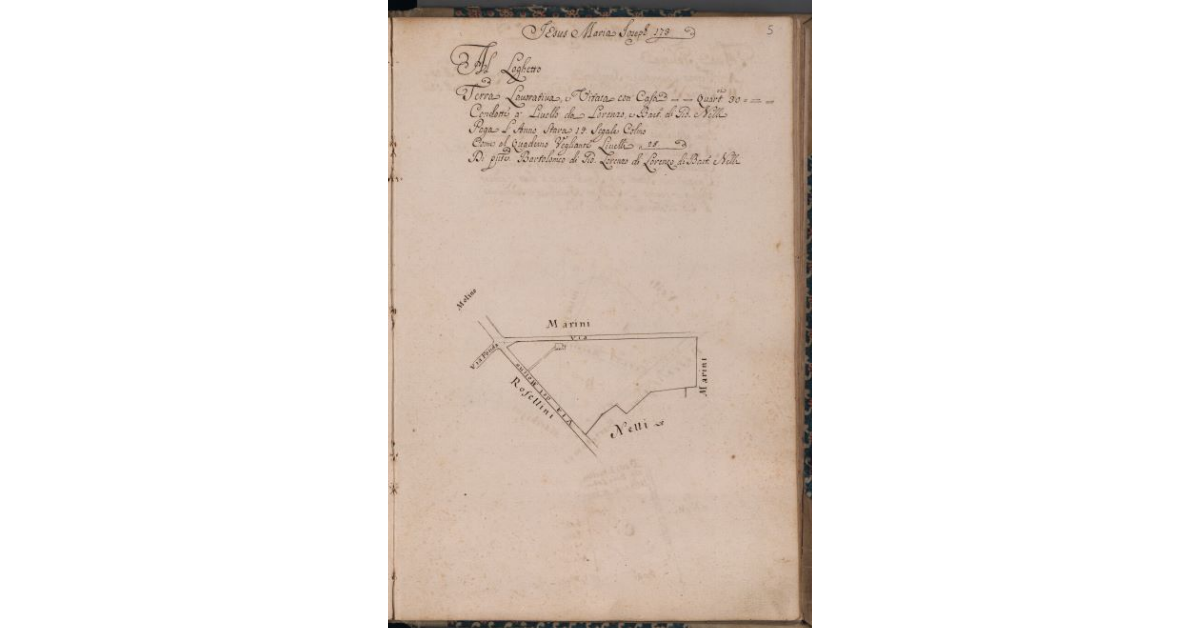 Jesus Maria Joseph 173
5
Al Loghetto
Terra Lavorativa, e Vitata con Casa — — Quart 30 — —
Condotta a Livello da Lorenzo, e Bart. di Gio. Nelli
Paga L'Anno Stara 12 Segale Colmo
Come al Quaderno Vegliante Livelli 25
D. Bartolomeo di Gio. Lorenzo di Lorenzo di Bart. Nelli
Molino
Marini
Via
Via Ponda
Via del Molino
Rosellini
Marini
Nelli